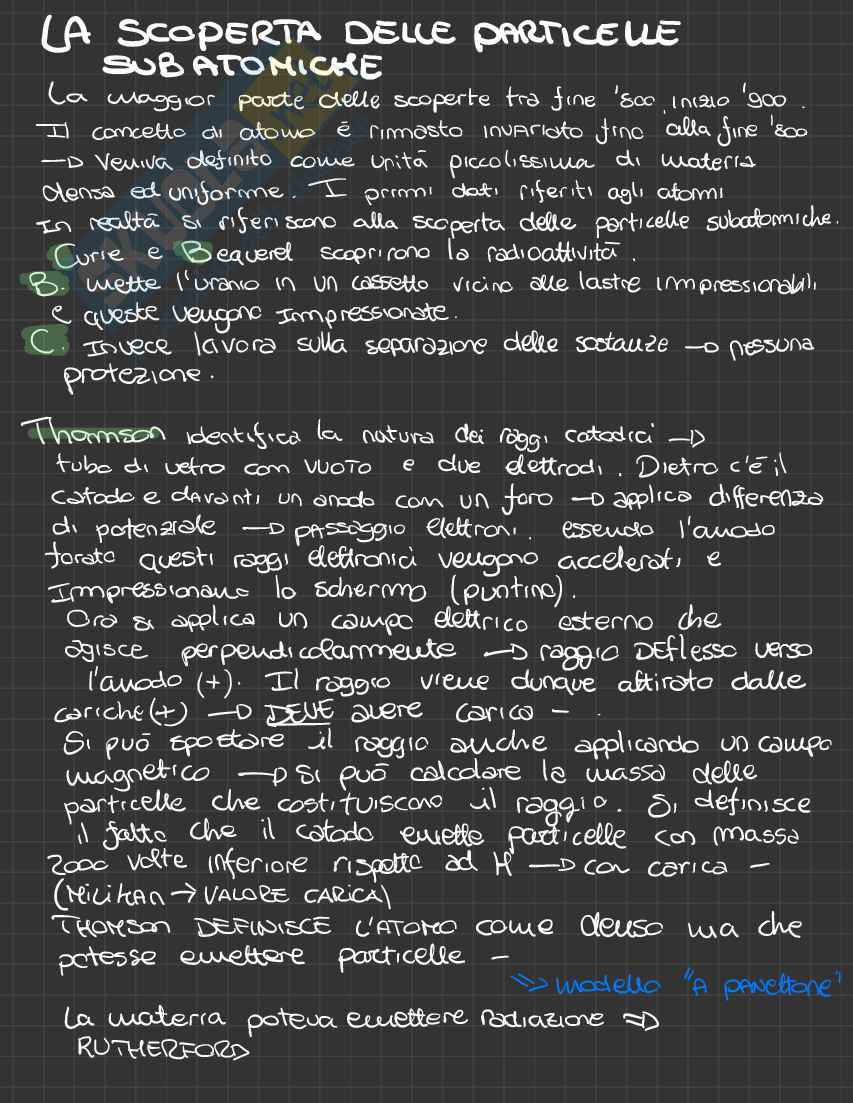 LA SCOPERTA DELLE PARTICELLE
SUBATOMICHE
La maggior parte delle scoperte tra fine '800, inizio '900.
Il concetto di atomo è rimasto invariato fino alla fine '800
→ Veniva definito come unità piccolissima di materia
densa ed uniforme. I primi dati riferiti agli atomi
In realtà si riferiscono alla scoperta delle particelle subatomiche.
Curie e Bequerel scoprirono la radioattività.
B. mette l'uranio in un cassetto vicino alle lastre impressionabili,
e queste vengono impressionate.
C. Invece lavora sulla separazione delle sostanze → nessuna
protezione.
Thomson identifica la natura dei raggi catodici →
tubo di vetro con VUOTO e due elettrodi. Dietro c'è il
catodo e davanti un anodo con un foro → applica differenza
di potenziale → passaggio elettroni. essendo l'anodo
forato questi raggi elettronici vengono accelerati e
Impressionano lo schermo (puntino).
Ora si applica un campo elettrico esterno che
agisce perpendicolarmente → raggio DEFLESSO verso
l'anodo (+). Il raggio viene dunque attirato dalle
cariche (+) → DEVE avere carica - .
Si può spostare il raggio anche applicando un campo
magnetico → Si può calcolare la massa delle
particelle che costituiscono il raggio. Si definisce
il fatto che il catodo emette particelle con massa
2000 volte inferiore rispetto ad H → con carica -
(MILIKAN → VALORE CARICA)
THOMSON DEFINISCE L'ATOMO come denso ma che
potesse emettere particelle -
⇒ modello "A PANETTONE"
La materia poteva emettere radiazione ⇒
RUTHERFORD